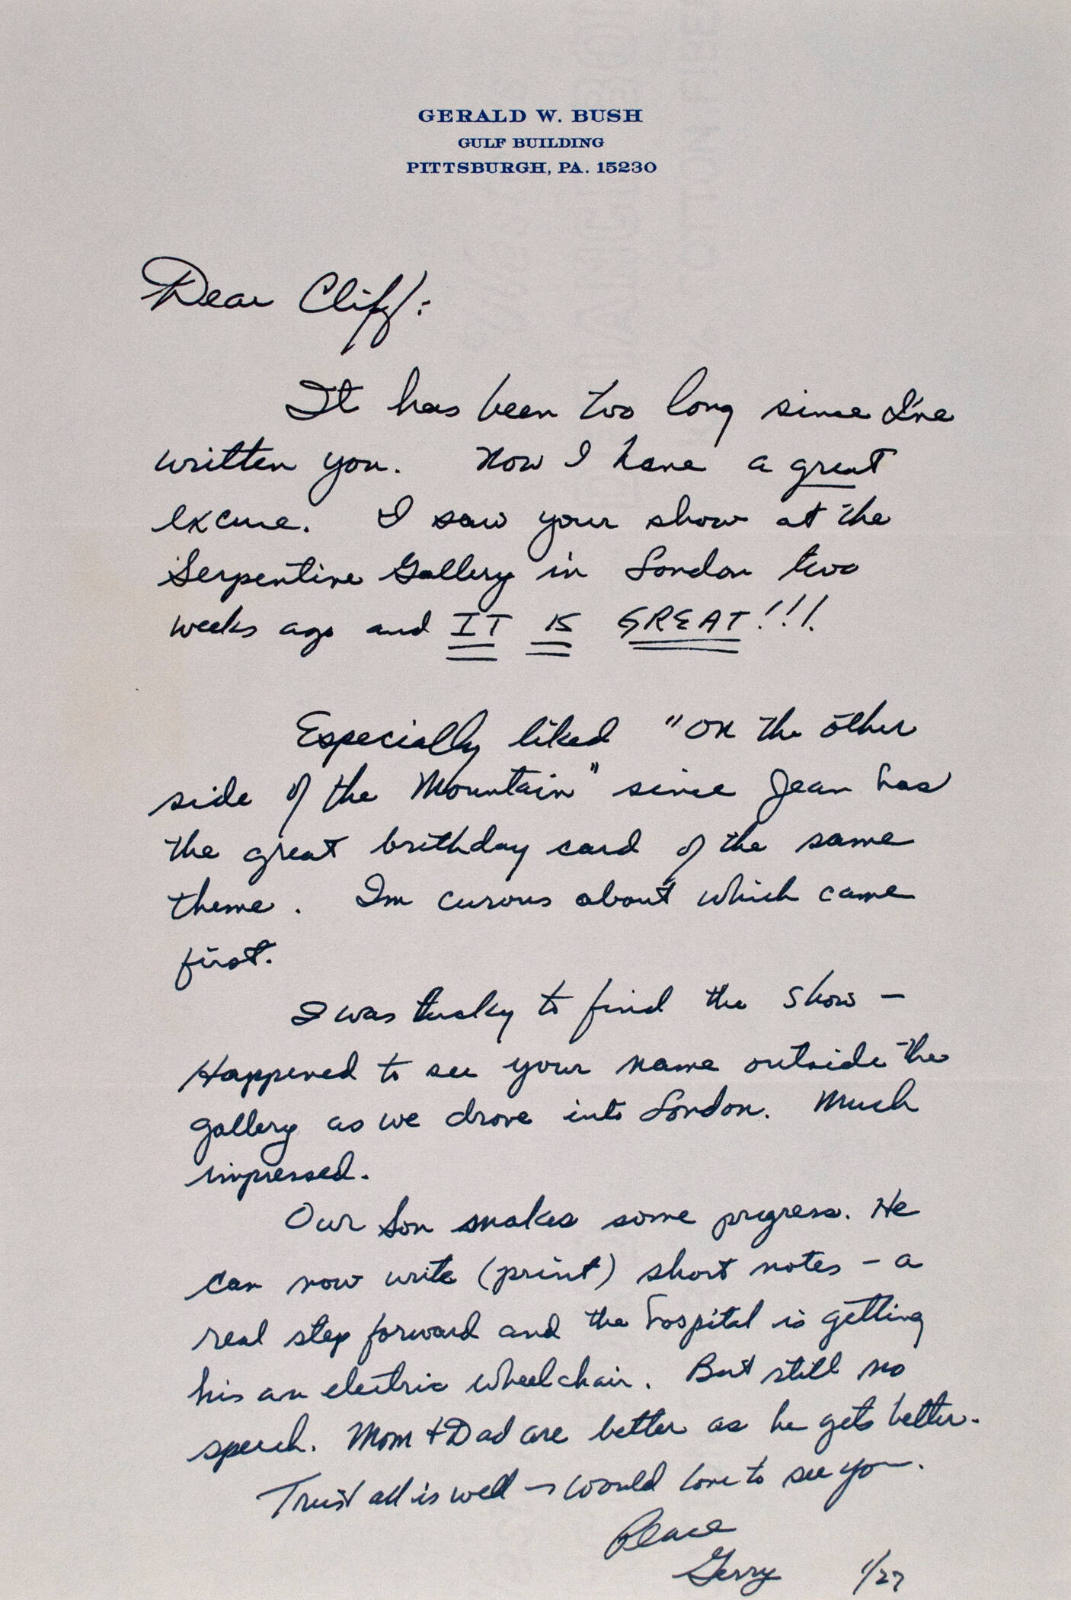 GERALD W. BUSH
GULF BUILDING
PITTSBURGH, PA. 15230
Dear Cliff:
It has been too long since I've
written you. Now I have a great
excuse. I saw your show at the
Serpentine Gallery in London two
weeks ago and IT IS GREAT!!!
Especially liked "on the other
side of the Mountain" since Jean has
the great birthday card of the same
theme. I'm curous about which came
first.
I was lucky to find the show –
Happened to see your name outside the
gallery as we drove into London. Much
impressed.
Our Son makes some progress. He
can now write (print) short notes – a
real step forward and the hospital is getting
his an electric wheelchair. But still no
speech. Mom + Dad are better as he gets better.
Trust all is well – would love to see you.
Peace
Gerry 1/27